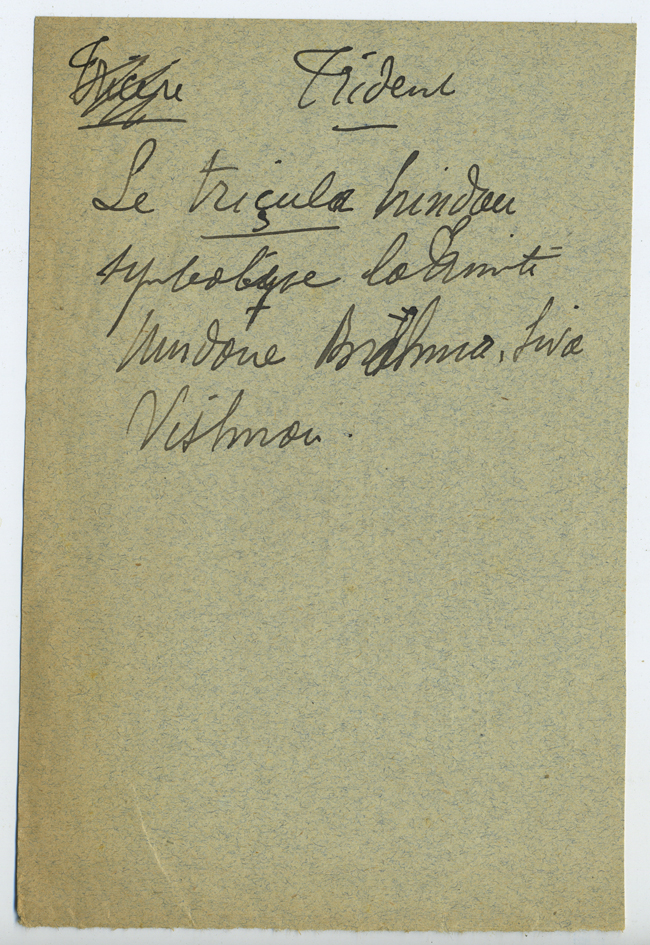 Trident
Le triçula hindou
symbolise la Trinité
hindoue Brahma, Siva
Vishnou.